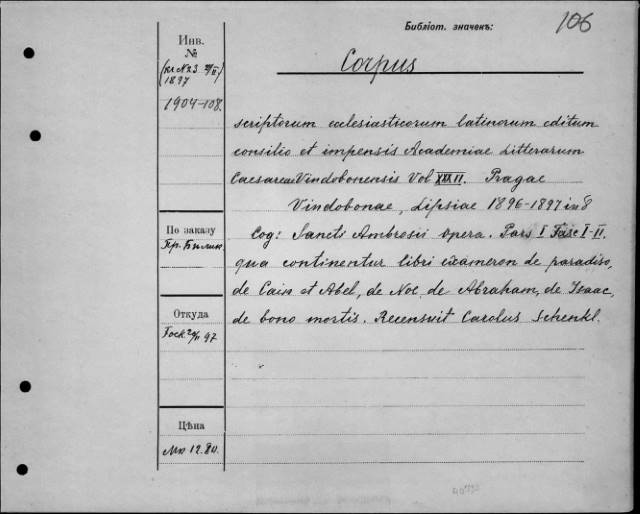 Библіот. значекъ:
106
Corpus
Инв.
№
1897
1904-108.
scriptorum ecclesiasticorum latinorum editum
consilio et impensis Academiae Litterarum
Caesareae Vindobonensis Vol XXXII. Pragae
Vindobonae, Lipsiae 1896-1897 in 8
Cog: Sancti Ambrosii opera. Pars I Fasc I-II.
qua continentur libri exameron de paradiso,
de Cain et Abel, de Noe, de Abraham, de Isaac,
de bono mortis. Recensuit Carolus Schenkl.
По заказу
Пр. Билик
Откуда
97
Цѣна
Мк 12.80.